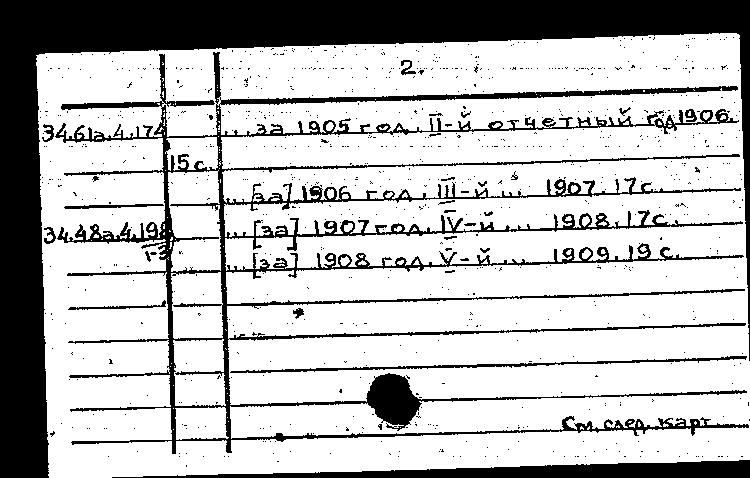 2.
34.61а.4.174 ... за 1905 год. II-й отчетный год 1906.
15 с.
... [за] 1906 год. III-й ... 1907. 17 с.
34.48а.4.198 ... [за] 1907 год. IV-й ... 1908. 17 с.
1-3 ... [за] 1908 год. V-й ... 1909. 19 с.
См. след. карт.